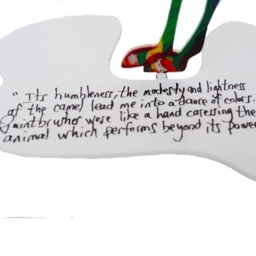 " Its humbleness, the modesty and lightness
of the camel lead me into a dance of colors.
Paintbrushes were like a hand caressing the
animal which performs beyond its power